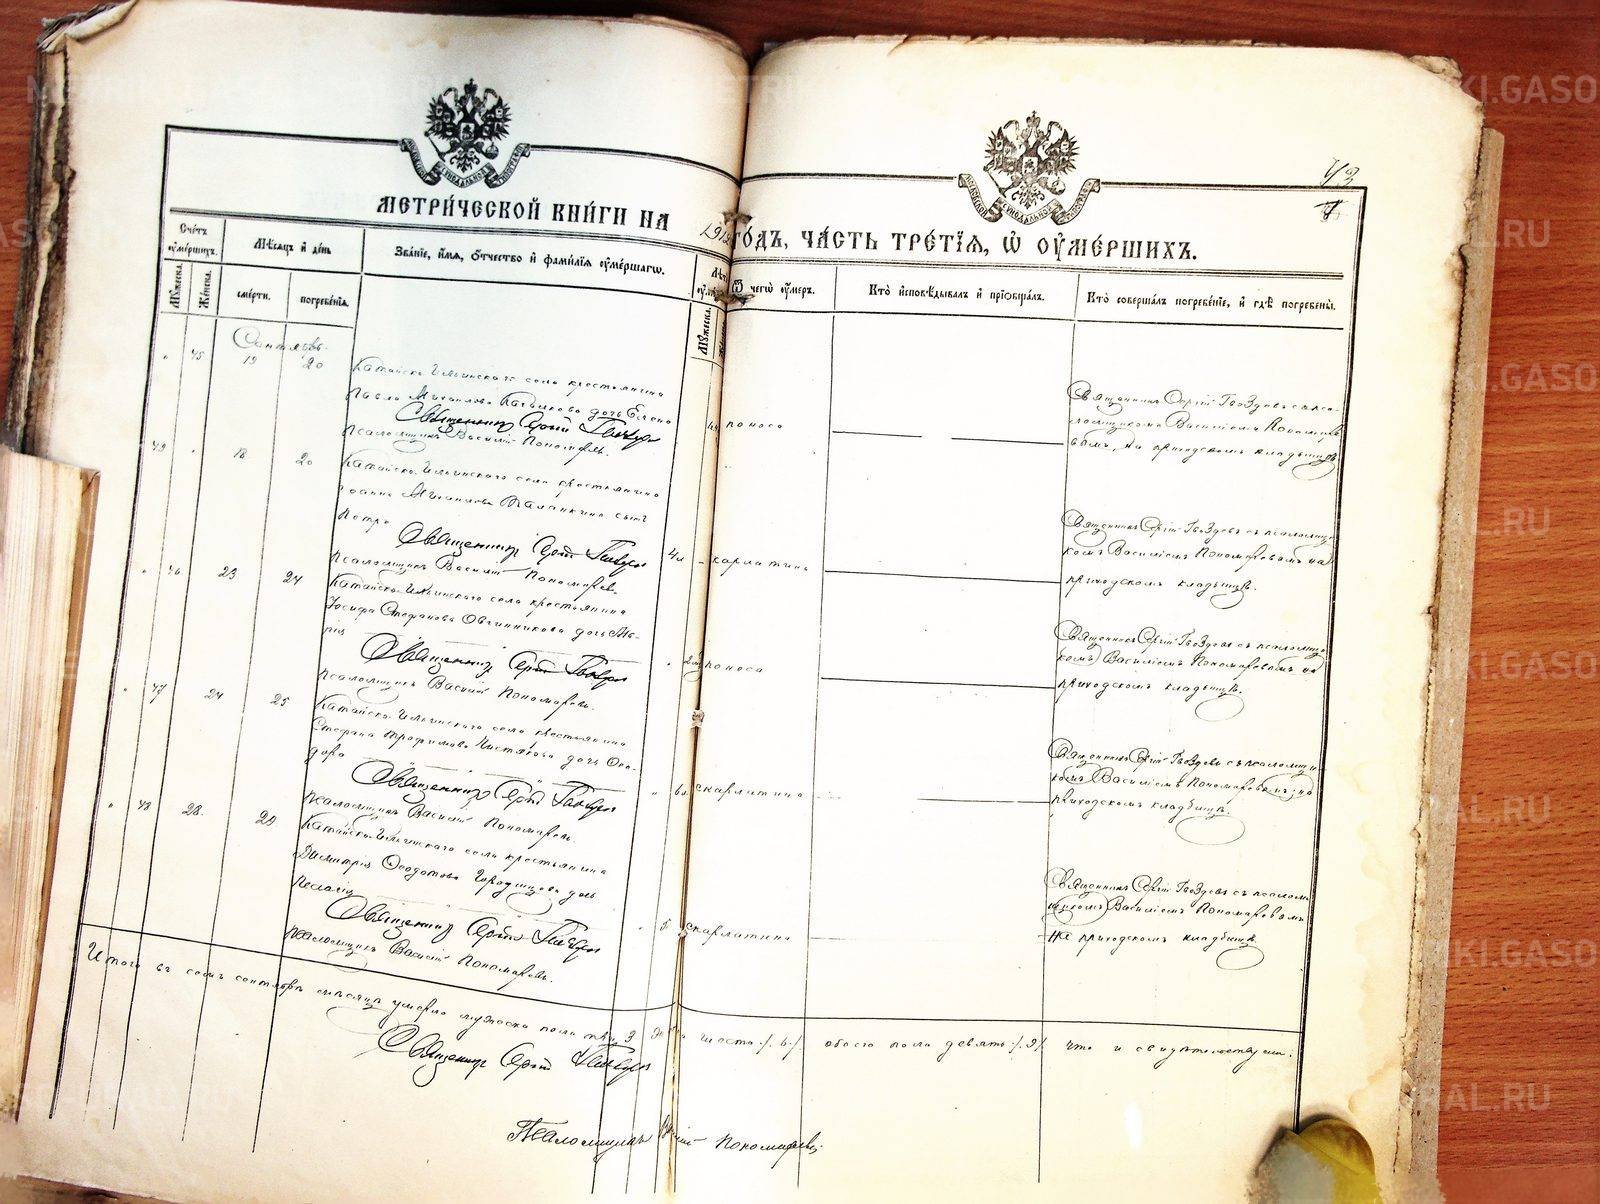 МЕТРИ́ЧЕСКОЙ КНИ́ГИ НА 191
ГО́ДЪ, ЧА́СТЬ ТРЕ́ТІѦ, Ѡ҆ ОУ҆МЕ́РШИХЪ.
43
Сче́тъ оу҆ме́ршихъ.
Мѣ́сѧцъ и҆ де́нь
Зва́нїе, и҆́мѧ, о҆́тчество и҆ фами́лїѧ оу҆ме́ршагѡ.
Ѿ чегѡ̀ оу҆́меръ.
Кто̀ и҆сповѣ́дывалъ и҆ прїѡбща́лъ.
Кто̀ соверша́лъ погребе́нїе, и҆ гдѣ̀ погребены̀.
Мꙋ́жеска.
Же́нска.
сме́рти.
погребе́нїѧ.
Мꙋ́жеска.
Сентябрь.
" 45 19 20
Катайско-Ильинскаго села крестьянина
Павла Михаилова дочь Елена
Священникъ Сергій Гвоздевъ
Псаломщикъ Василій Пономаревъ.
поноса
Священникъ Сергій Гвоздевъ съ псаломщикомъ Василіемъ Пономаревымъ, на приходскомъ кладбищѣ
49 " 18 20
Катайско-Ильинскаго села крестьянина
Іоанна Михаилова сынъ
Петръ
Священникъ Сергій Гвоздевъ
Псаломщикъ Василій Пономаревъ.
4 л
скарлатины
Священникъ Сергій Гвоздевъ съ псаломщи-
комъ Василіемъ Пономаревымъ на
приходскомъ кладбищѣ.
" 46 23 24
Катайско-Ильинскаго села крестьянина
Іосифа Стефанова Овчинникова дочь Ма-
рія
Священникъ Сергій Гвоздевъ
Псаломщикъ Василій Пономаревъ.
поноса
Священникъ Сергій Гвоздевъ съ псаломщи-
комъ Василіемъ Пономаревымъ на
приходскомъ кладбищѣ.
" 47 24 25
Катайско-Ильинскаго села крестьянина
Стефана Трофимова Чистякова дочь Ѳео-
дора
Священникъ Сергій Гвоздевъ
Псаломщикъ Василій Пономаревъ.
" 6 л
скарлатина
Священникъ Сергій Гвоздевъ съ псаломщи-
комъ Василіемъ Пономаревымъ; на
приходскомъ кладбищѣ.
" 48 28. 29
Катайско-Ильинскаго села крестьянина
Димитрія Ѳеодотова Городищева дочь
Пелагія
Священникъ Сергій Гвоздевъ
Псаломщикъ Василій Пономаревъ.
скарлатина
Священникъ Сергій Гвоздевъ съ псалом-
щикомъ Василіемъ Пономаревымъ
на приходскомъ кладбищѣ.
Итого въ семъ сентябрѣ мѣсяцѣ умерло мужеска пола три 3 шесть /. 6 ./ обоего пола девять /. 9 / что и свидѣтельствуемъ.
Священникъ Сергій Гвоздевъ
Псаломщикъ Василій Пономаревъ.